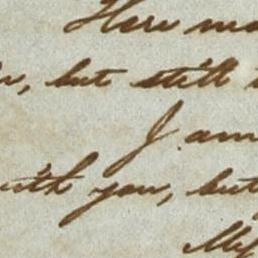 Here
but still
I am
with you, but
My